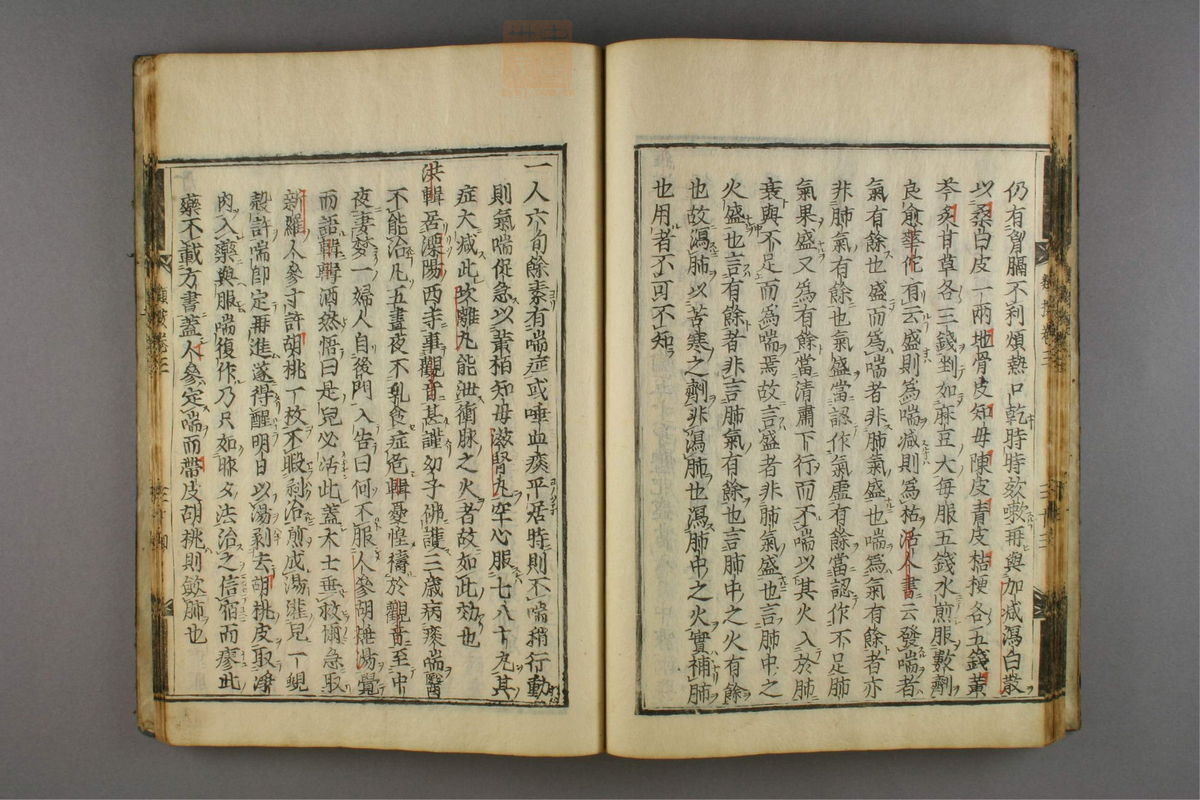 仍有胷膈不利煩熱口乾時時欬嗽再與加减瀉白散
以桑白皮一兩地骨皮知毋陳皮青皮桔梗各五錢黃
芩炙甘草各三錢剉如麻豆大每服五錢水煎服數劑
良愈華佗有云盛則為喘减則為枯活人書云發喘者
氣有餘也盛而為喘者非肺氣盛也喘為氣有餘者亦
非肺氣有餘也氣盛當認作氣虛有餘當認作不足肺
氣果盛又為有餘當清肅下行而不喘以其火入於肺
衰與不足而為喘焉故言盛者非肺氣盛也言肺中之
火盛也言有餘者非言肺氣有餘也言肺中之火有餘
也故瀉肺以苦寒之劑非瀉肺也瀉肺中之火實補肺
也用者不可不知
一人六旬餘素有喘症或唾血痰平居時則不喘稍行動
則氣喘促急以黃栢知毋滋腎丸空心服七八十丸其
症大减此坎離丸能泄衝脉之火者故如此効也
洪輯居溧陽西寺事觀音甚謹幼子佛護三歲病痰喘醫
不能治凡五晝夜不乳食症危輯憂惶禱於觀音至中
夜妻夢一婦人自後門入告曰何不服人參胡桃湯覺
而語輯輯洒然悟曰是兒必活此蓋大士垂救爾急取
新羅人參寸許胡桃一枚不暇剥治煎成湯灌兒一蜆
殼許喘即定再進遂得醒明日以湯剥去胡桃皮取淨
肉入藥與服喘復作乃只如昨夕法治之信宿而瘳此
藥不載方書蓋人參定喘而帶皮胡桃則歛肺也